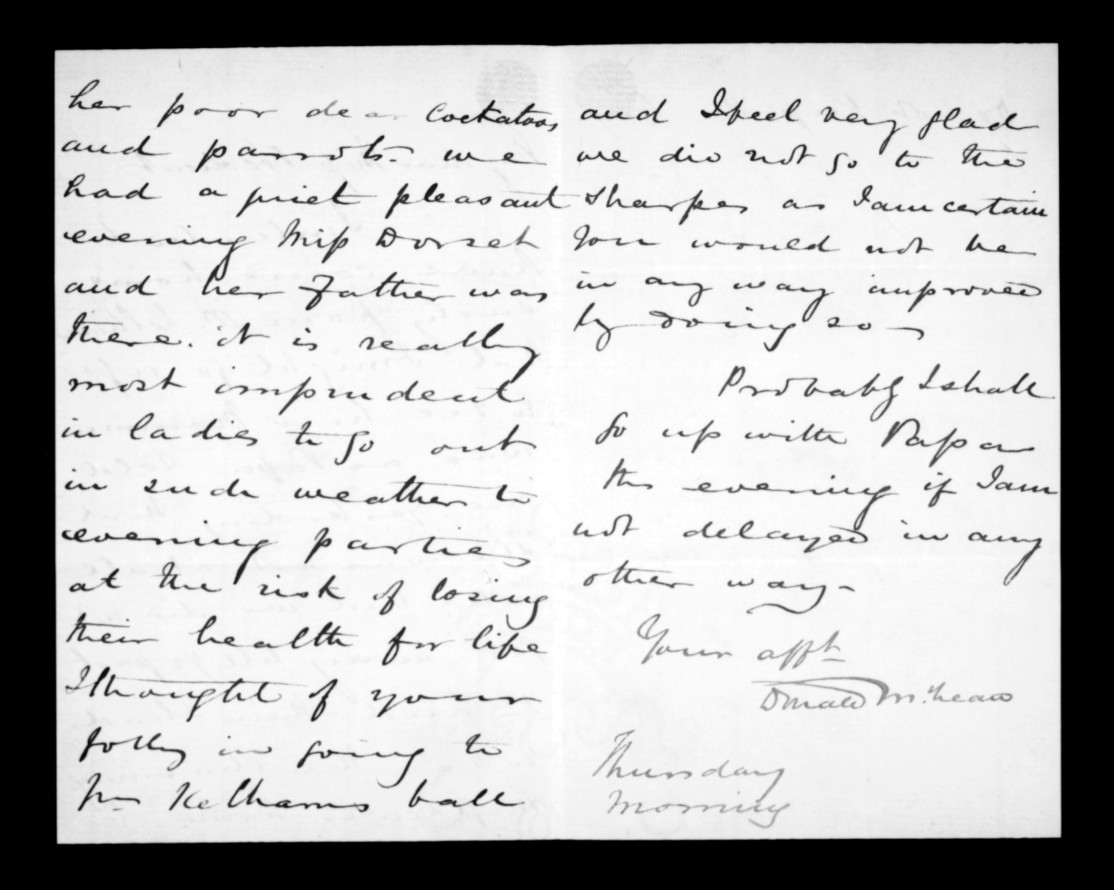 her poor dear Cockatoos
and parrots. we
had a quiet pleasant
evening Miss Dorset
and her Father was
there. it is really
most imprudent
in ladies to go out
in such weather to
evening parties
at the risk of losing
their health for life
I thought of your
folly in going to
Mrs Kelhams ball
and I feel very glad
we did not go to the
Sharpes as I am certain
you would not be
in any way improved
by doing so
Probably I shall
go up with Papa
this evening if I am
not delayed in any
other way.
Your afft
Donald McLean
Thursday
Morning